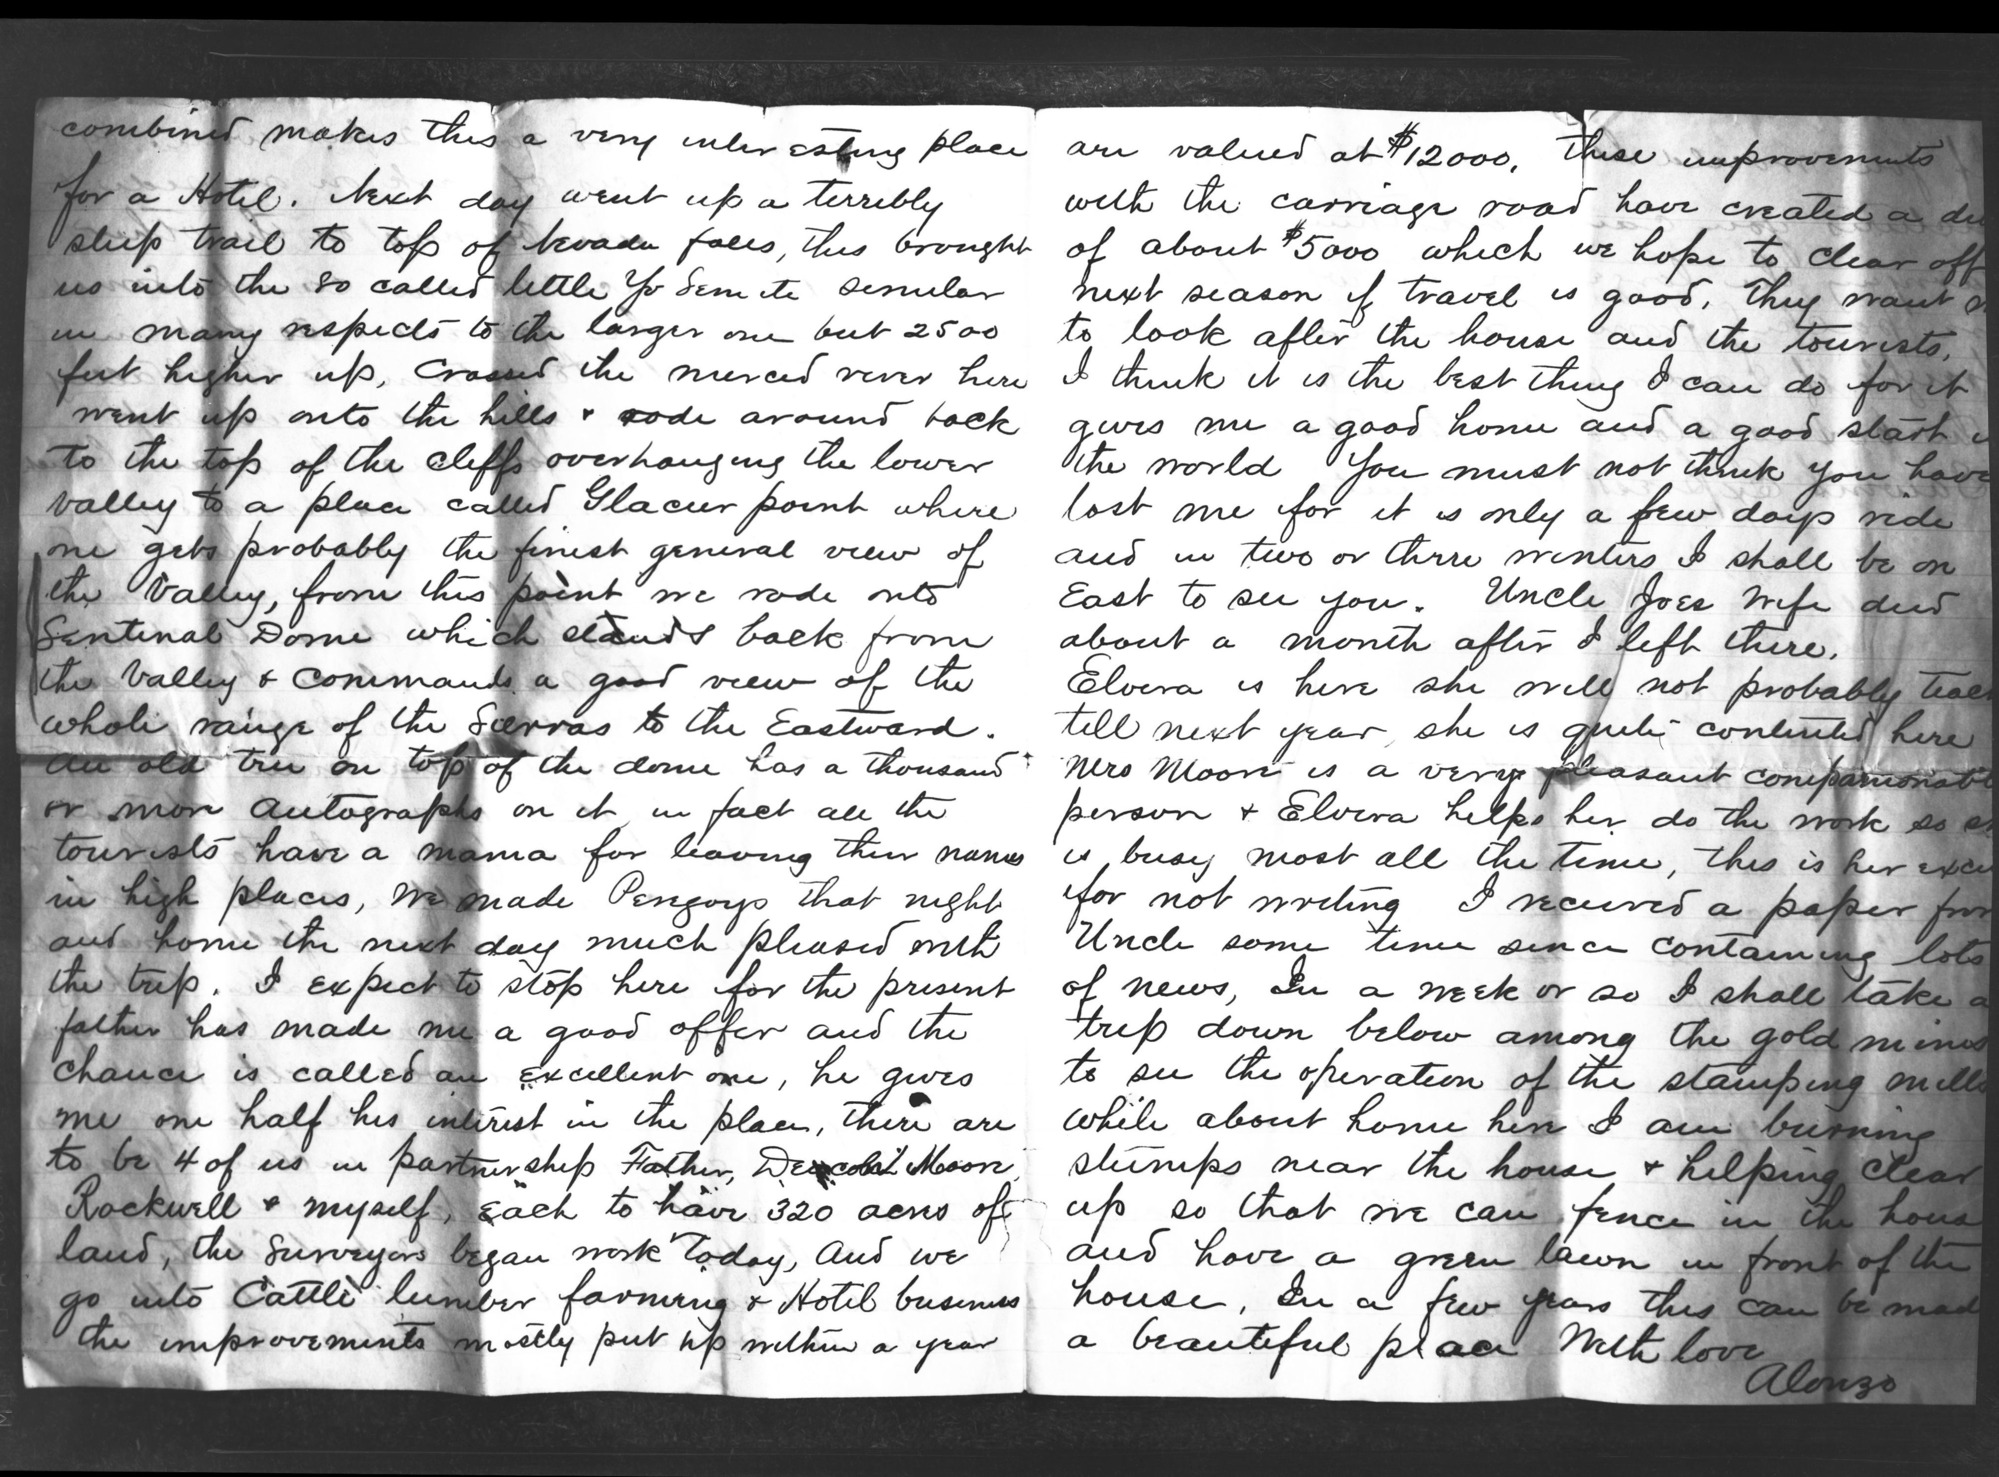 combined makes this a very interesting place
for a Hotel. Next day went up a terribly
steep trail to top of Nevada falls, this brought
us into the so called little Yo Semite similar
in many respects to the larger one but 2500
feet higher up, Crossed the merced river here
went up onto the hills & rode around back
to the top of the cliffs overhanging the lower
valley to a place called Glacier point where
one gets probably the finest general view of
the Valley, from this point we rode onto
Sentinal Dome which stands back from
the Valley & commands a good view of the
whole range of the Sierras to the Eastward.
An old tree on top of the dome has a thousand
or more autographs on it, in fact all the
tourists have a mania for leaving their names
in high places, We made Peregoys that night
and home the next day much pleased with
the trip. I expect to stop here for the present
father has made me a good offer and the
chance is called an excellent one, he gives
me one half his interest in the place, there are
to be 4 of us in partnership Father, Deacon Moore
Rockwell & myself, each to have 320 acres of
land, the surveyors began work today, And we
go into Cattle lumber farming & Hotel business
the improvements mostly put up within a year
are valued at $12000. These improvements
with the carriage road have created a
of about $5000 which we hope to clear off
next season if travel is good. They want
to look after the house and the tourists.
I think it is the best thing I can do for it
gives me a good home and a good start
the world You must not think you have
lost me for it is only a few days ride
and in two or three winters I shall be on
East to see you. Uncle Joes Wife died
about a month after I left there.
Elvira is here she will not probably teach
till next year, she is quite contented here
Mrs Moore is a very pleasant companionable
person & Elvira helps her do the work so
is busy most all the time, this is her
for not writing I received a paper from
Uncle some time since containing lots
of news, In a week or so I shall take a
trip down below among the gold mines
to see the operation of the stamping mills
while about home here I am burning
stumps near the house & helping clear
up so that we can fence in the
and have a green lawn in front of the
house, In a few years this can be made
a beautiful place With love
Alonzo